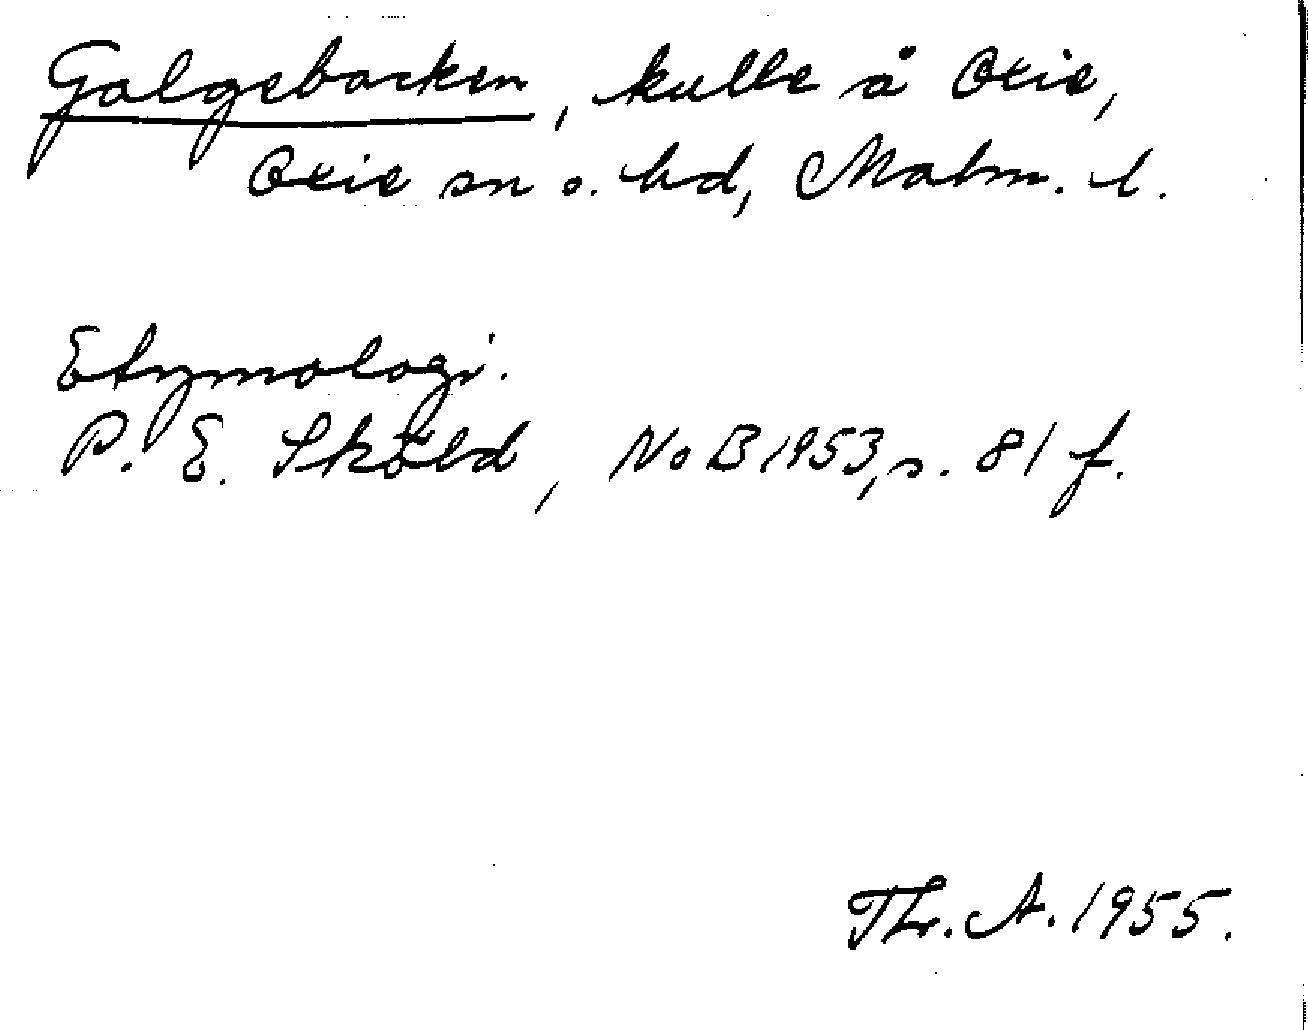 Galgebacken, kulle å Oxie,
Oxie sn o. hd, Malm. l.
Etymologi.
P. E. Sköld, NoB 1953, s. 81 f.
Th. A. 1955.